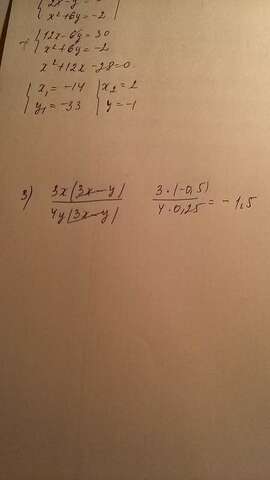 x²+6y = -2
12x-6y = 30
x²+6y = -2
x²+12x-28=0
x₁ = -14 x₂ = 2
y₁ = -33 y = -1
3) 3x(3x-y) / 4y(3x-y) 3·(-0,5) / 4·0,25 = -1,5